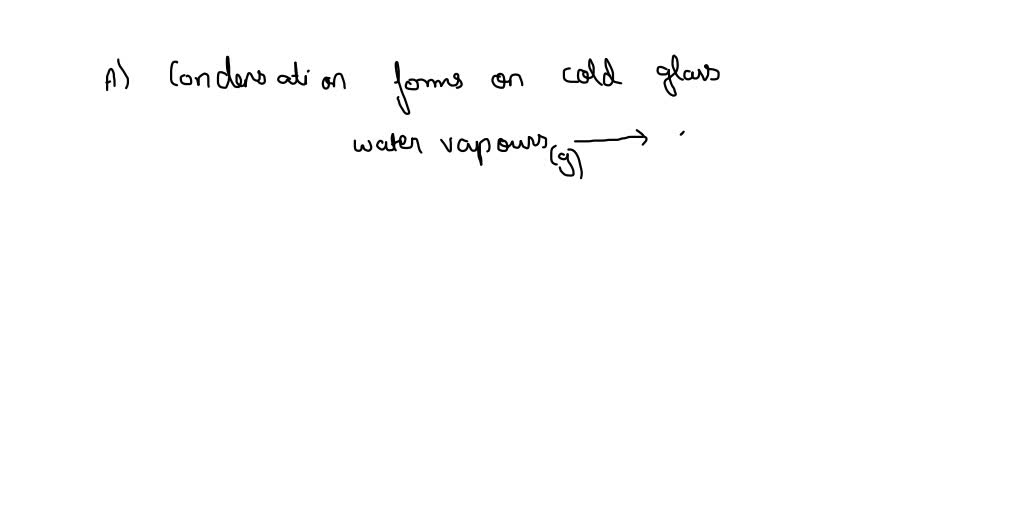 A) Condensation forms on cold glass
water vapours(g) ⟶